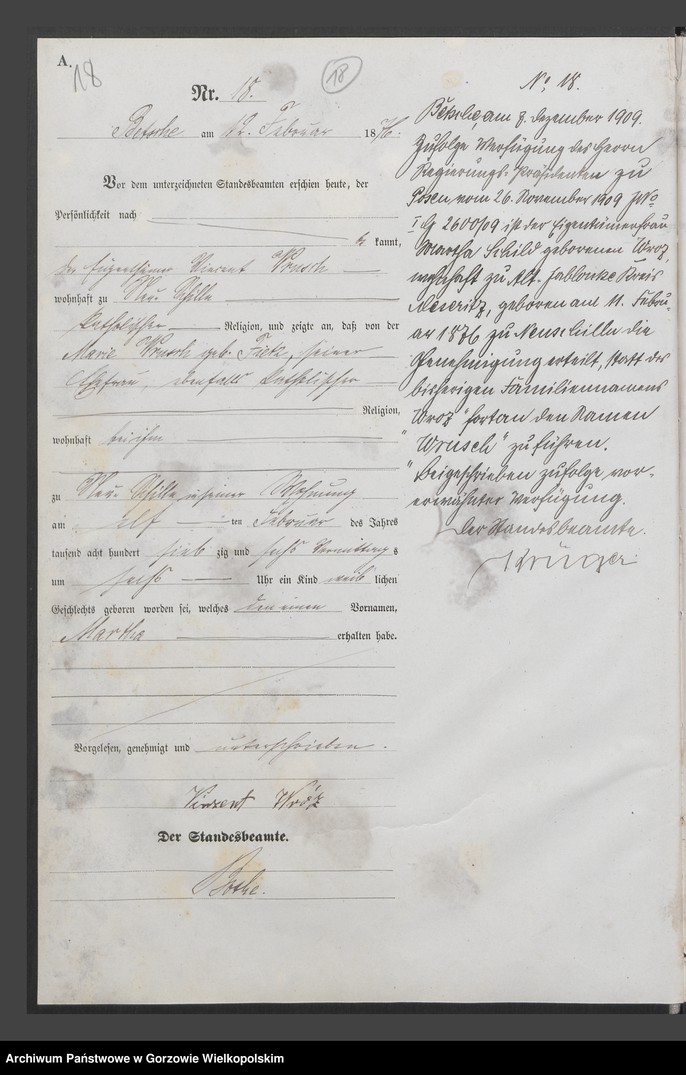 A.
18
18
Nr. 18.
Betsche am 12. Februar 1876.
Vor dem unterzeichneten Standesbeamten erschien heute, der
Persönlichkeit nach
kannt,
der Eigenthümer Vincent Wrusch
wohnhaft zu Neu-Schilln
katholischer Religion, und zeigte an, daß von der
Marie Wrusch geb. seiner
Ehefrau, ebenfalls katholischer
Religion,
wohnhaft bei ihm
zu Neu-Schilln in seiner Wohnung
am elf ten Februar des Jahres
tausend acht hundert sieb zig und sechs Vormittags
um sechs Uhr ein Kind weib lichen
Geschlechts geboren worden sei, welches den einen Vornamen,
Martha erhalten habe.
Vorgelesen, genehmigt und unterschrieben.
Vinzent Wróz
Der Standesbeamte.
Bothe.
No. 18.
Betsche, am 8. Dezember 1909.
Zufolge Verfügung des Herrn
Regierungs-Präsidenten zu
Posen vom 26. November 1909
2600/09 ist der Eigentümerfrau
Martha Schild geborenen Wroz,
wohnhaft zu Alt-Jablonke Kreis
Meseritz, geboren am 11. Febru-
ar 1876 zu Neuschilln die
Genehmigung erteilt, statt des
bisherigen Familiennamens
"Wroz" fortan den Namen
"Wrusch" zu führen.
Beigeschrieben zufolge vor-
erwähnter Verfügung.
Der Standesbeamte.
Krüger
Archiwum Państwowe w Gorzowie Wielkopolskim